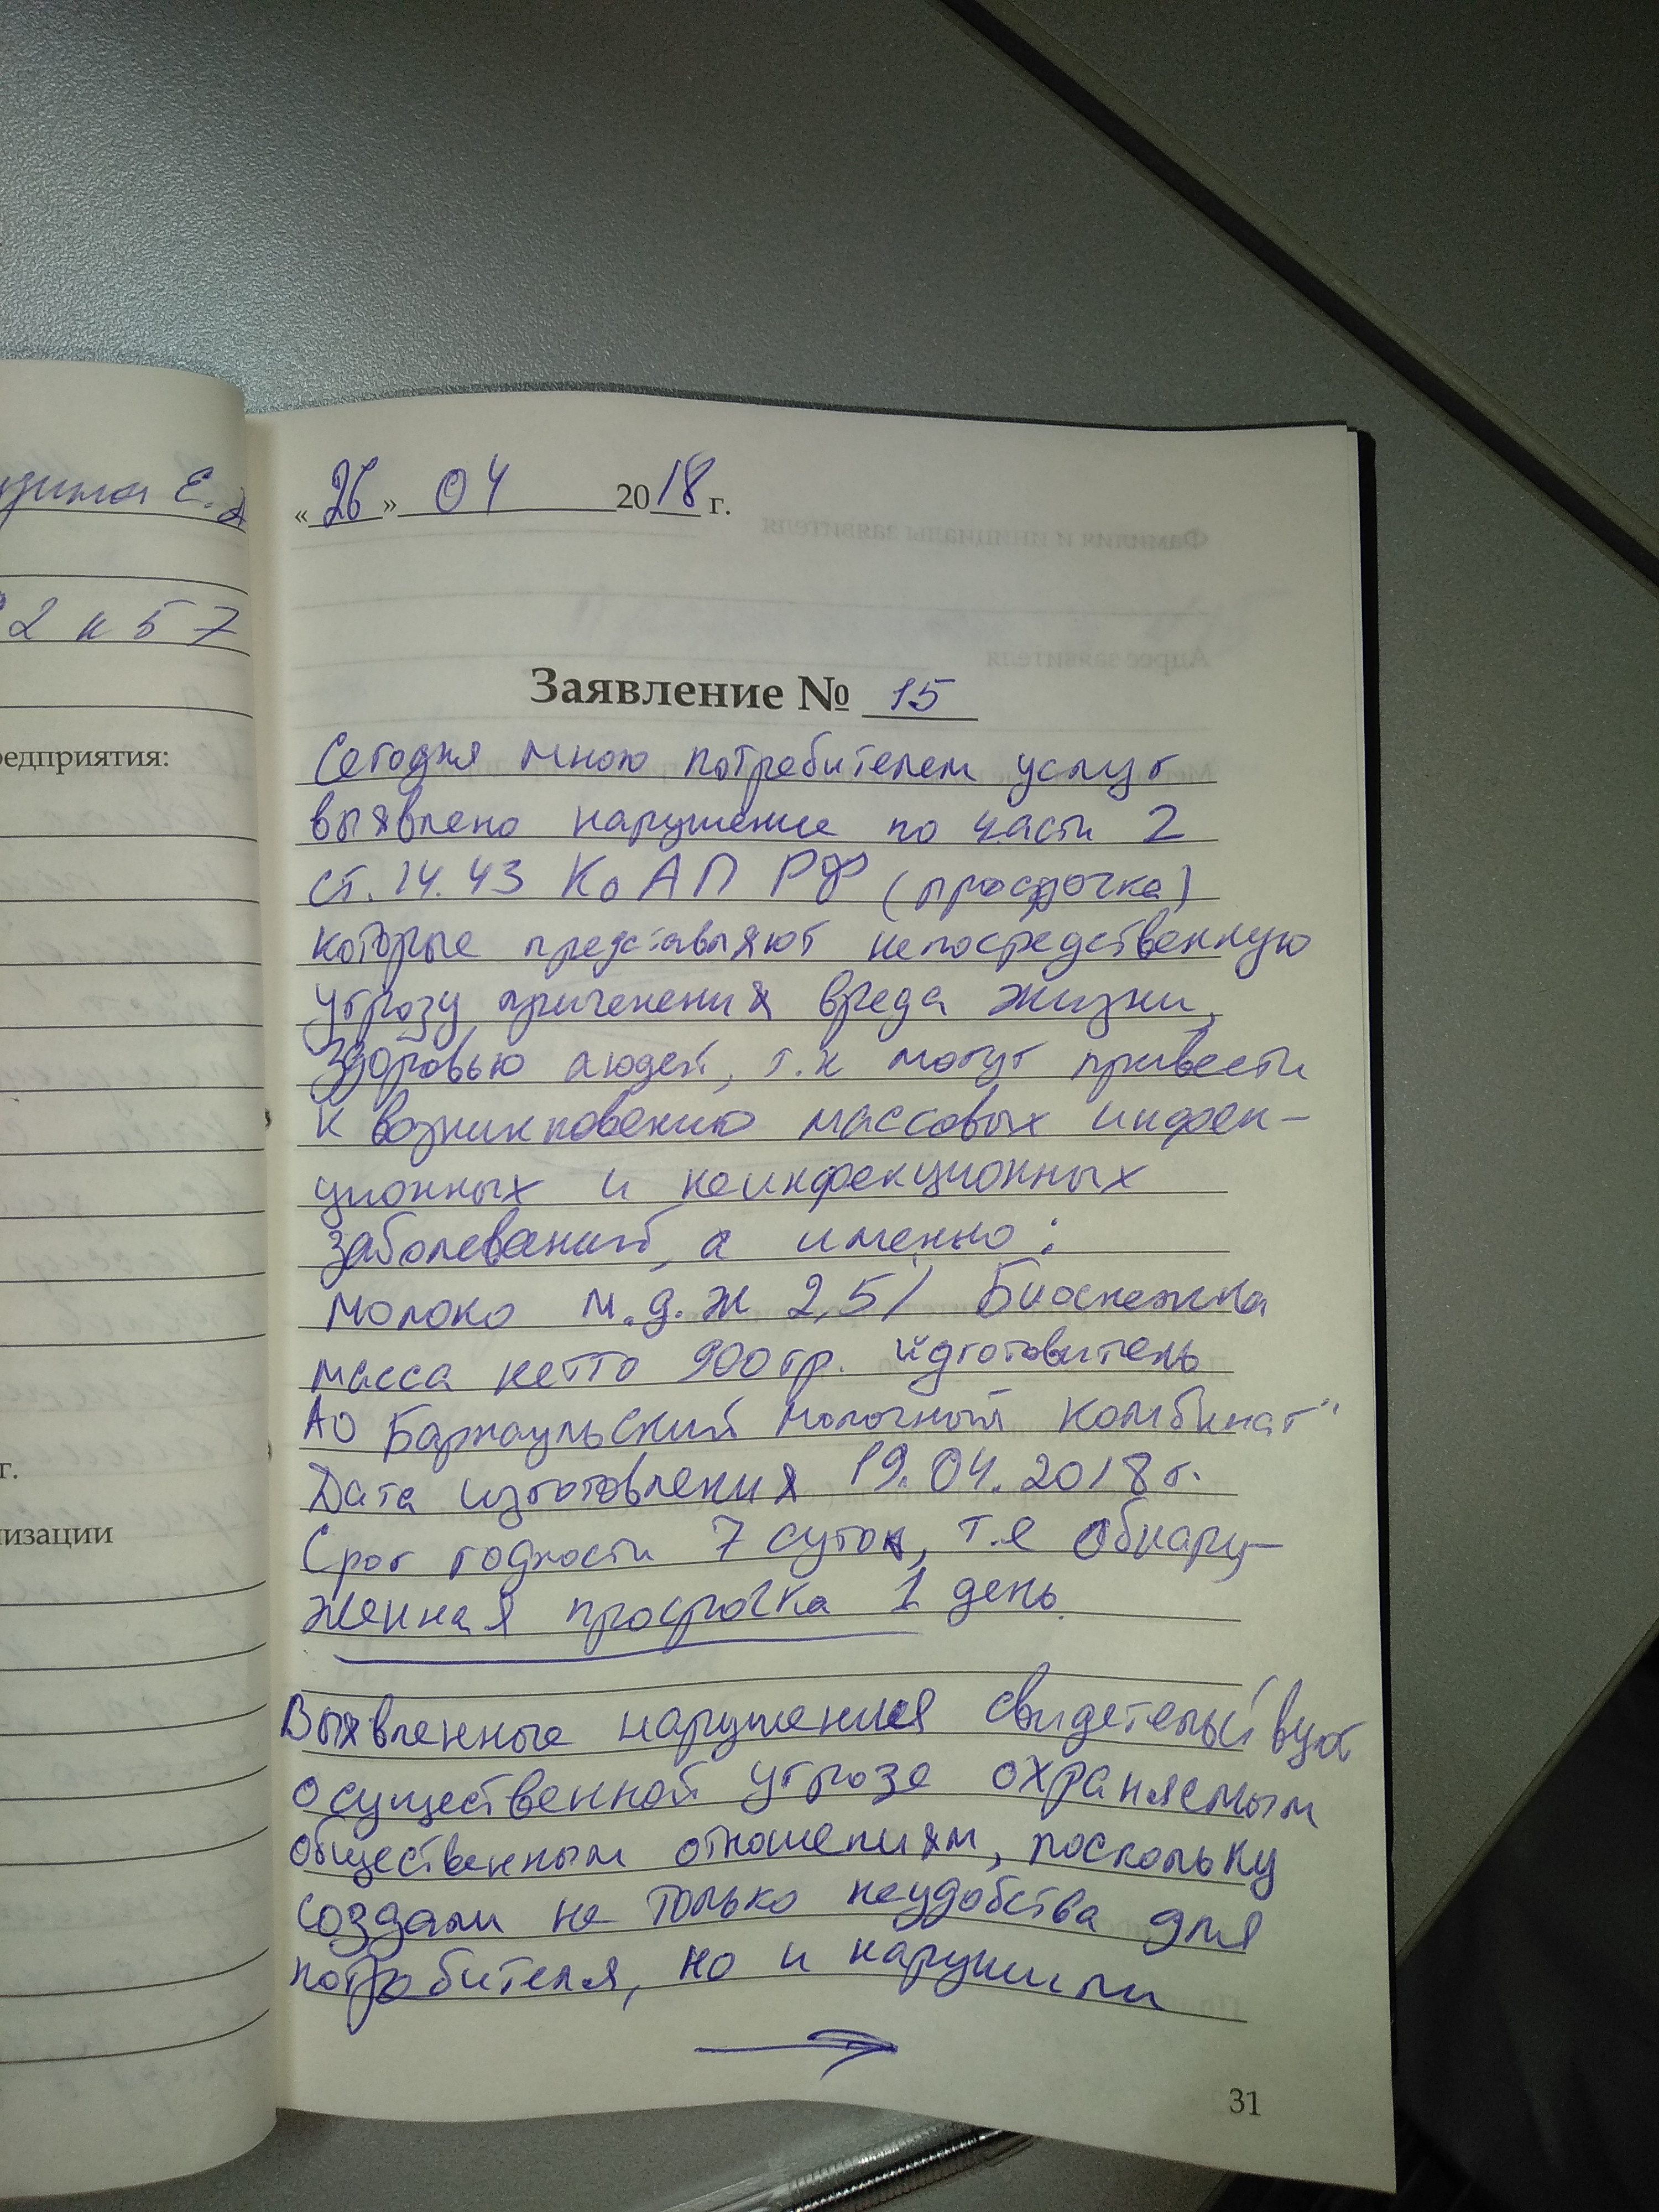 Е.
2 к 57
редприятия:
г.
низации
«26» 04 2018 г.
Фамилия и инициалы заявителя
Адрес заявителя
Заявление № 15
Сегодня мною потребителем услуг
выявлено нарушение по части 2
ст. 14.43 КоАП РФ (просрочка)
которые представляют непосредственную
угрозу причинения вреда жизни,
здоровью людей, т.к могут привести
к возникновению массовых инфек-
ционных и неинфекционных
заболеваний, а именно:
молоко м.д.ж 2,5% Биоснежка
масса нетто 900 гр. изготовитель
АО Барнаульский молочный комбинат"
Дата изготовления 19.04.2018г.
Срок годности 7 суток, т.е обнару-
женная просрочка 1 день.
Выявленные нарушения свидетельствуют
о существенной угрозе охраняемым
общественным отношениям, поскольку
создали не только неудобства для
потребителя, но и нарушили
31